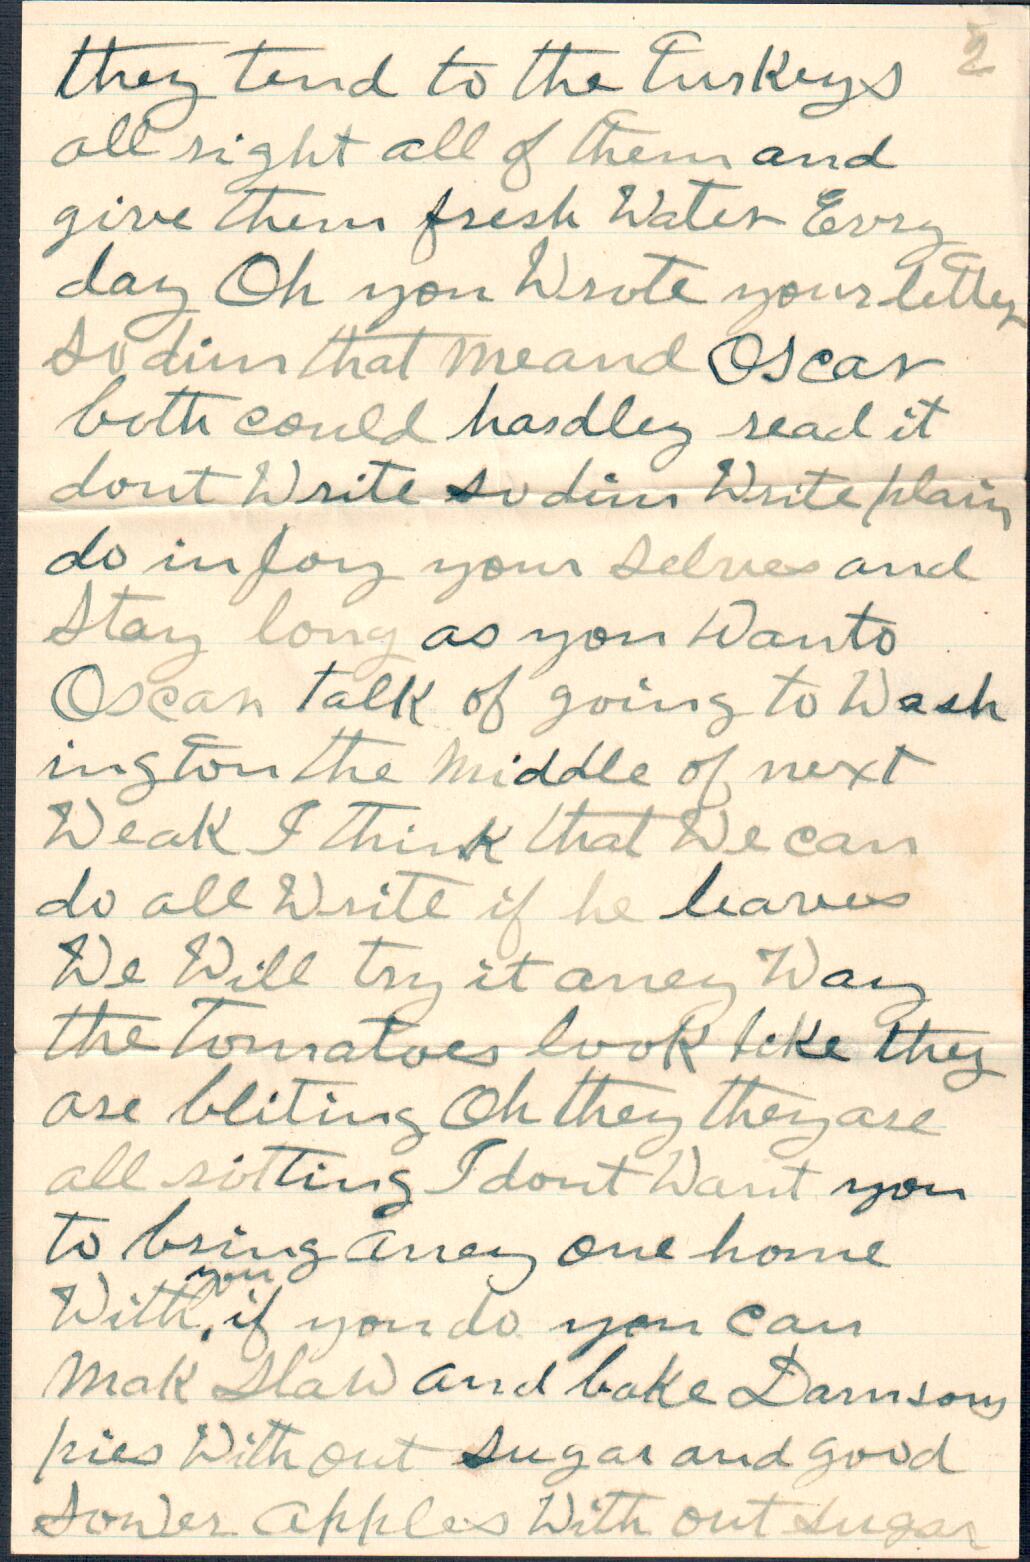 2
they tend to the Turkeys
all right all of them and
give them fresh Water Evry
day Oh you Wrote your letter
so dim that me and Oscar
both could hardley read it
dont Write so dim Write plain
do injoy your selves and
Stay long as you Wanto
Oscar talk of going to Wash
ington the middle of next
Weak I think that We can
do all Write if he leaves
We Will try it anney Way
the tomatoes look like they
are bliting Oh they they are
all rotting I dont Want you
to bring anney one home
With you, if you do you can
Mak Slaw and bake Damsons
pies With out sugar and good
Sower apples With out sugar